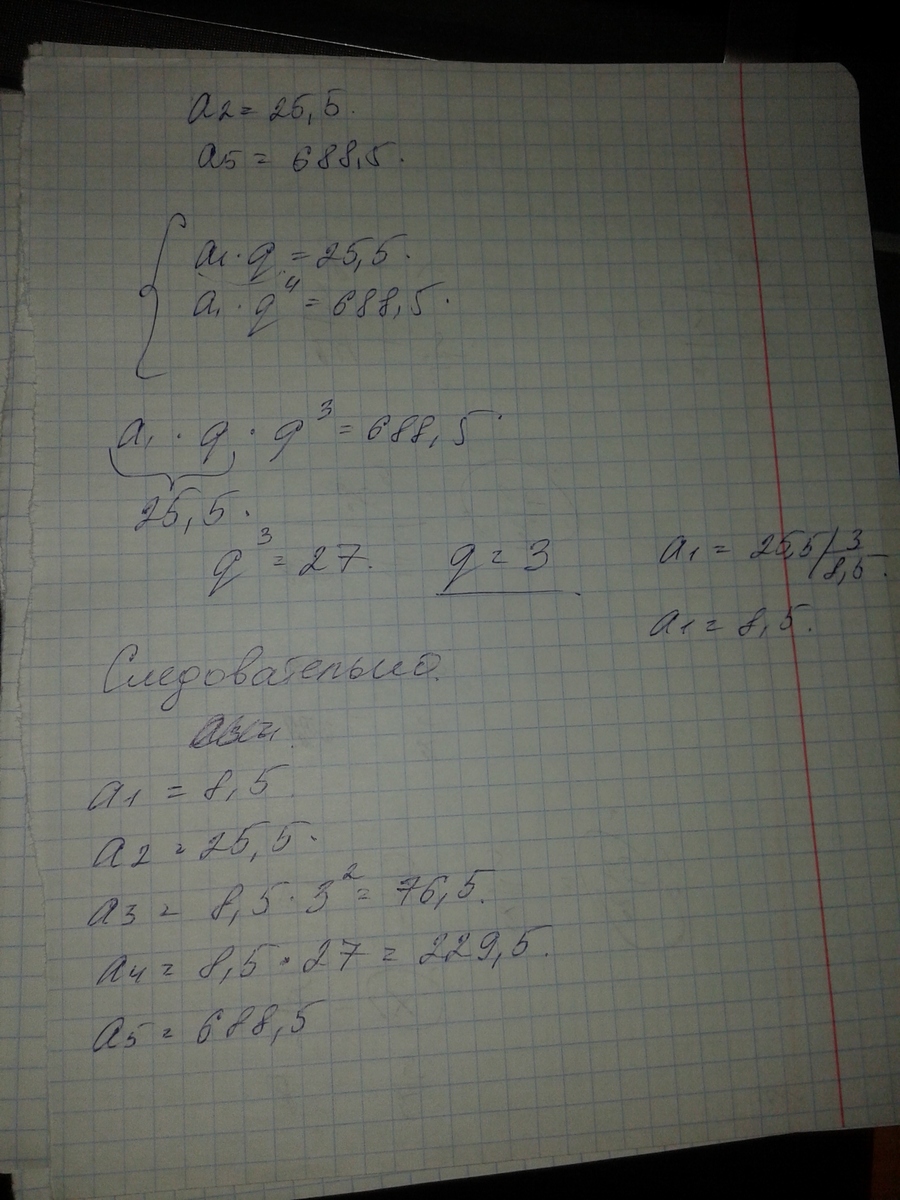 a2 = 25,5.
a5 = 688,5.
a1 · q = 25,5.
a1 · q⁴ = 688,5.
a1 · q · q³ = 688,5
25,5.
q³ = 27. q = 3 a1 = 25,5 | 3
8,5.
a1 = 8,5.
Следовательно.
a1 = 8,5
a2 = 25,5.
a3 = 8,5 · 3² = 76,5.
a4 = 8,5 · 27 = 229,5.
a5 = 688,5